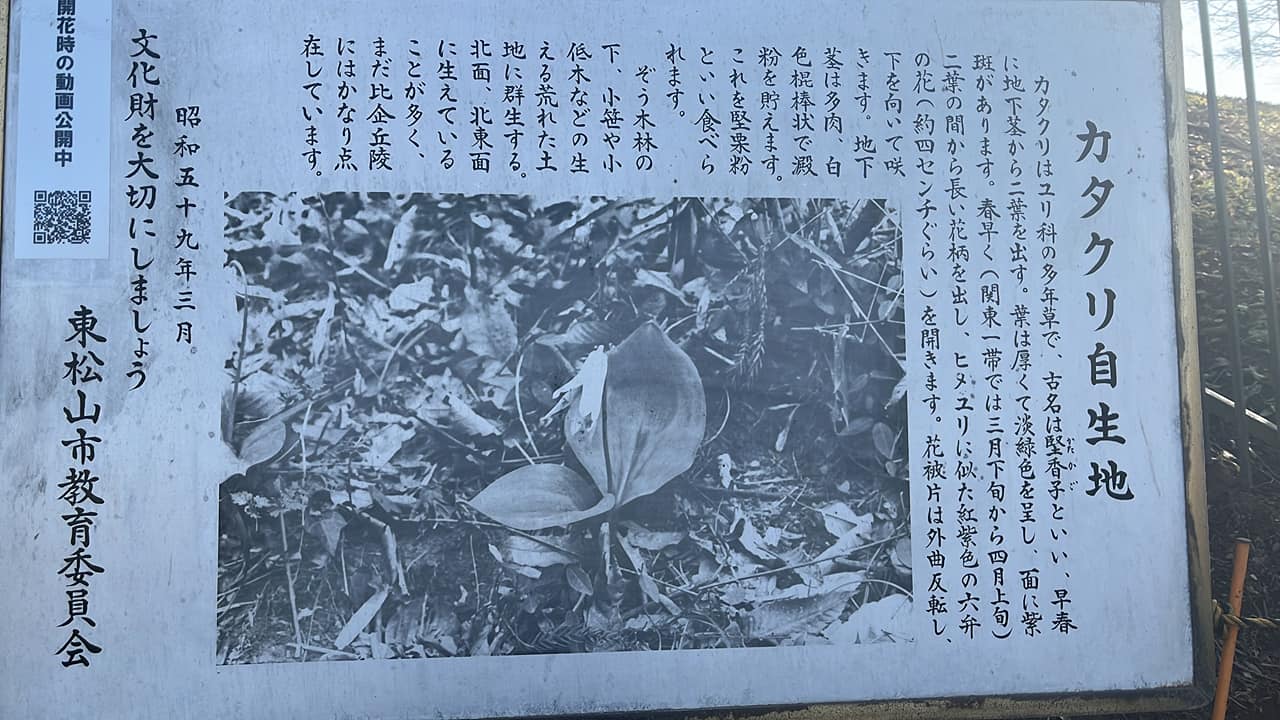 カタクリ自生地
カタクリはユリ科の多年草で、古名は堅香子といい、早春
かたかご
に地下茎から二葉を出す。葉は厚くて淡緑色を呈し、一面に紫
斑があります。春早く(関東一帯では三月下旬から四月上旬)
二葉の間から長い花柄を出し、ヒメユリに似た紅紫色の六弁
の花(約四センチぐらい)を開きます。花被片は外曲反転し、
下を向いて咲
きます。地下
茎は多肉、白
色棍棒状で澱
粉を貯えます。
これを堅栗粉
といい食べら
れます。
ぞう木林の
下、小笹や小
低木などの生
える荒れた土
地に群生する。
北面、北東面
に生えている
ことが多く、
まだ比企丘陵
にはかなり点
在しています。
昭和五十九年三月
文化財を大切にしましょう
東松山市教育委員会
開花時の動画公開中